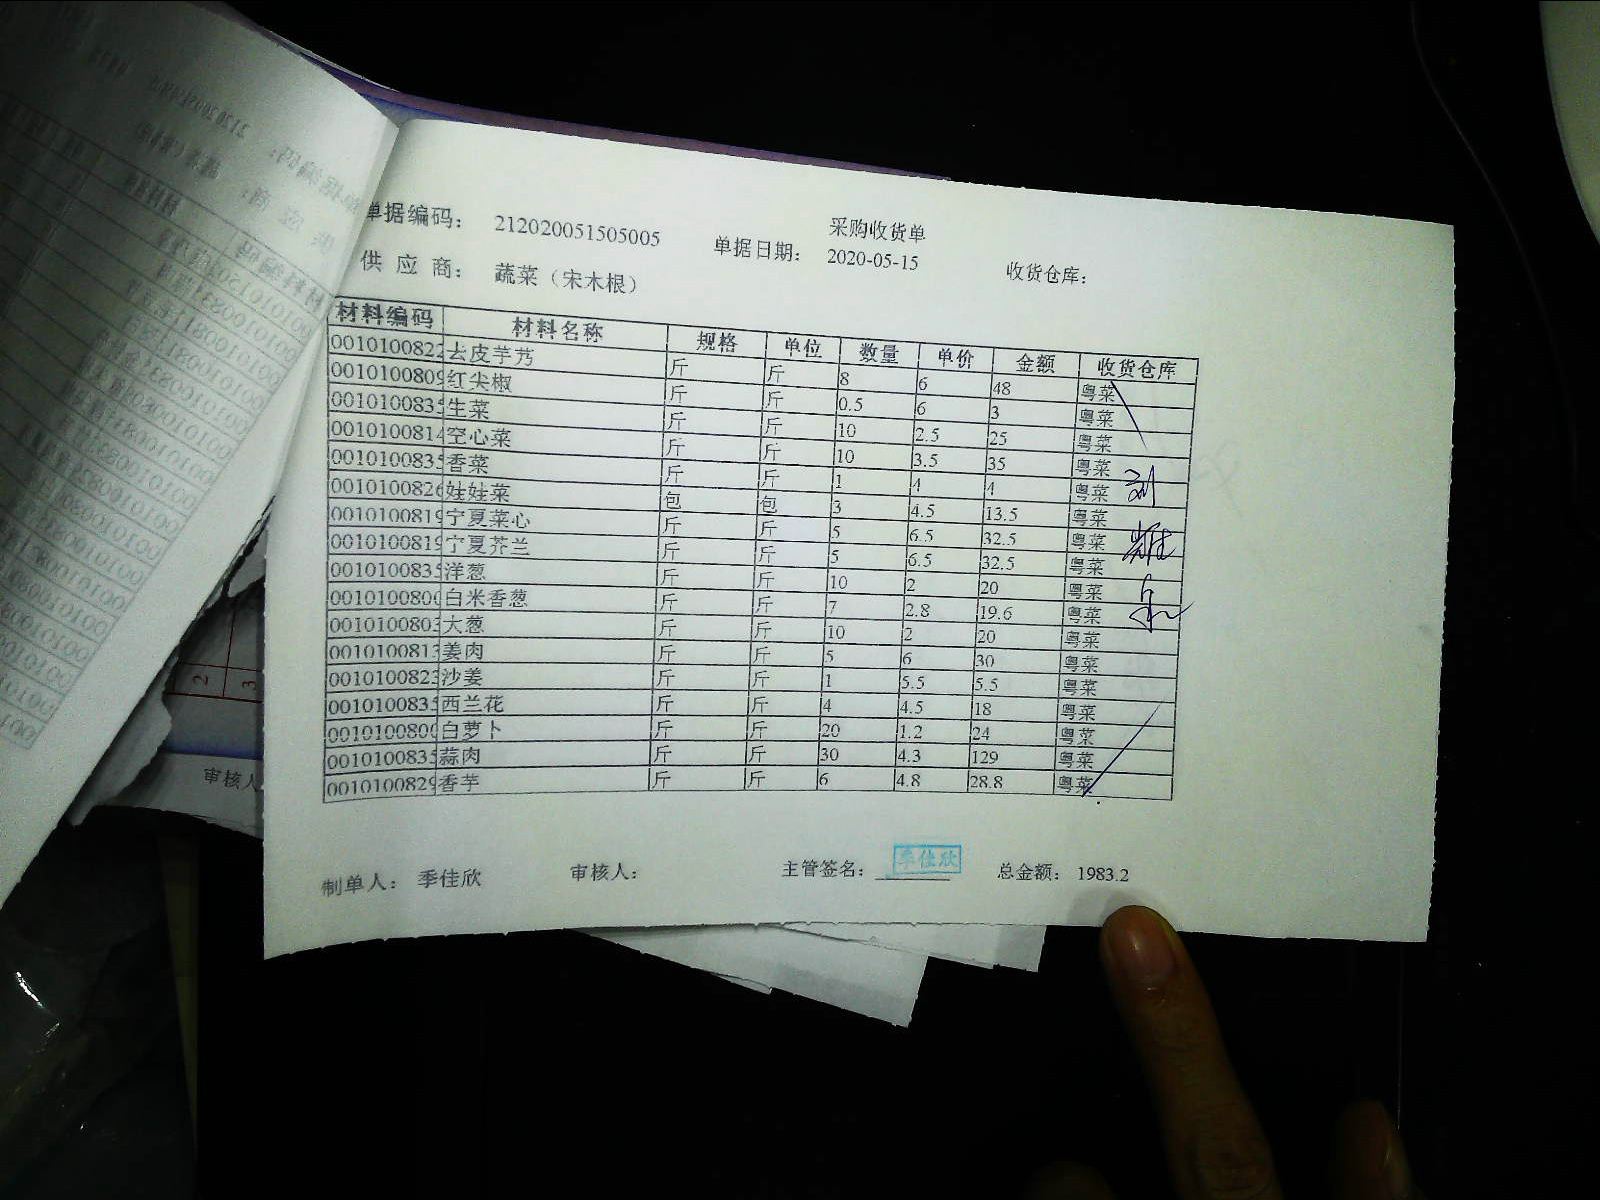 采购收货单
单据编码： 212020051505005 单据日期： 2020-05-15 收货仓库：
供 应 商： 蔬菜（宋木根）
材料编码 材料名称 规格 单位 数量 单价 金额 收货仓库
0010100822 去皮芋艿 斤 斤 8 6 48 粤菜
0010100809 红尖椒 斤 斤 0.5 6 3 粤菜
001010083 生菜 斤 斤 10 2.5 25 粤菜
0010100814 空心菜 斤 斤 10 3.5 35 粤菜
001010083 香菜 斤 斤 1 4 4 粤菜
0010100826 娃娃菜 包 包 3 4.5 13.5 粤菜
0010100819 宁夏菜心 斤 斤 5 6.5 32.5 粤菜
0010100819 宁夏芥兰 斤 斤 5 6.5 32.5 粤菜
001010083 洋葱 斤 斤 10 2 20 粤菜
0010100800 白米香葱 斤 斤 7 2.8 19.6 粤菜
0010100803 大葱 斤 斤 10 2 20 粤菜
0010100813 姜肉 斤 斤 5 6 30 粤菜
0010100823 沙姜 斤 斤 1 5.5 5.5 粤菜
001010083 西兰花 斤 斤 4 4.5 18 粤菜
0010100800 白萝卜 斤 斤 20 1.2 24 粤菜
001010083 蒜肉 斤 斤 30 4.3 129 粤菜
0010100829 香芋 斤 斤 6 4.8 28.8 粤菜
制单人： 季佳欣 审核人： 主管签名： 季佳欣 总金额： 1983.2
审核人
2
3